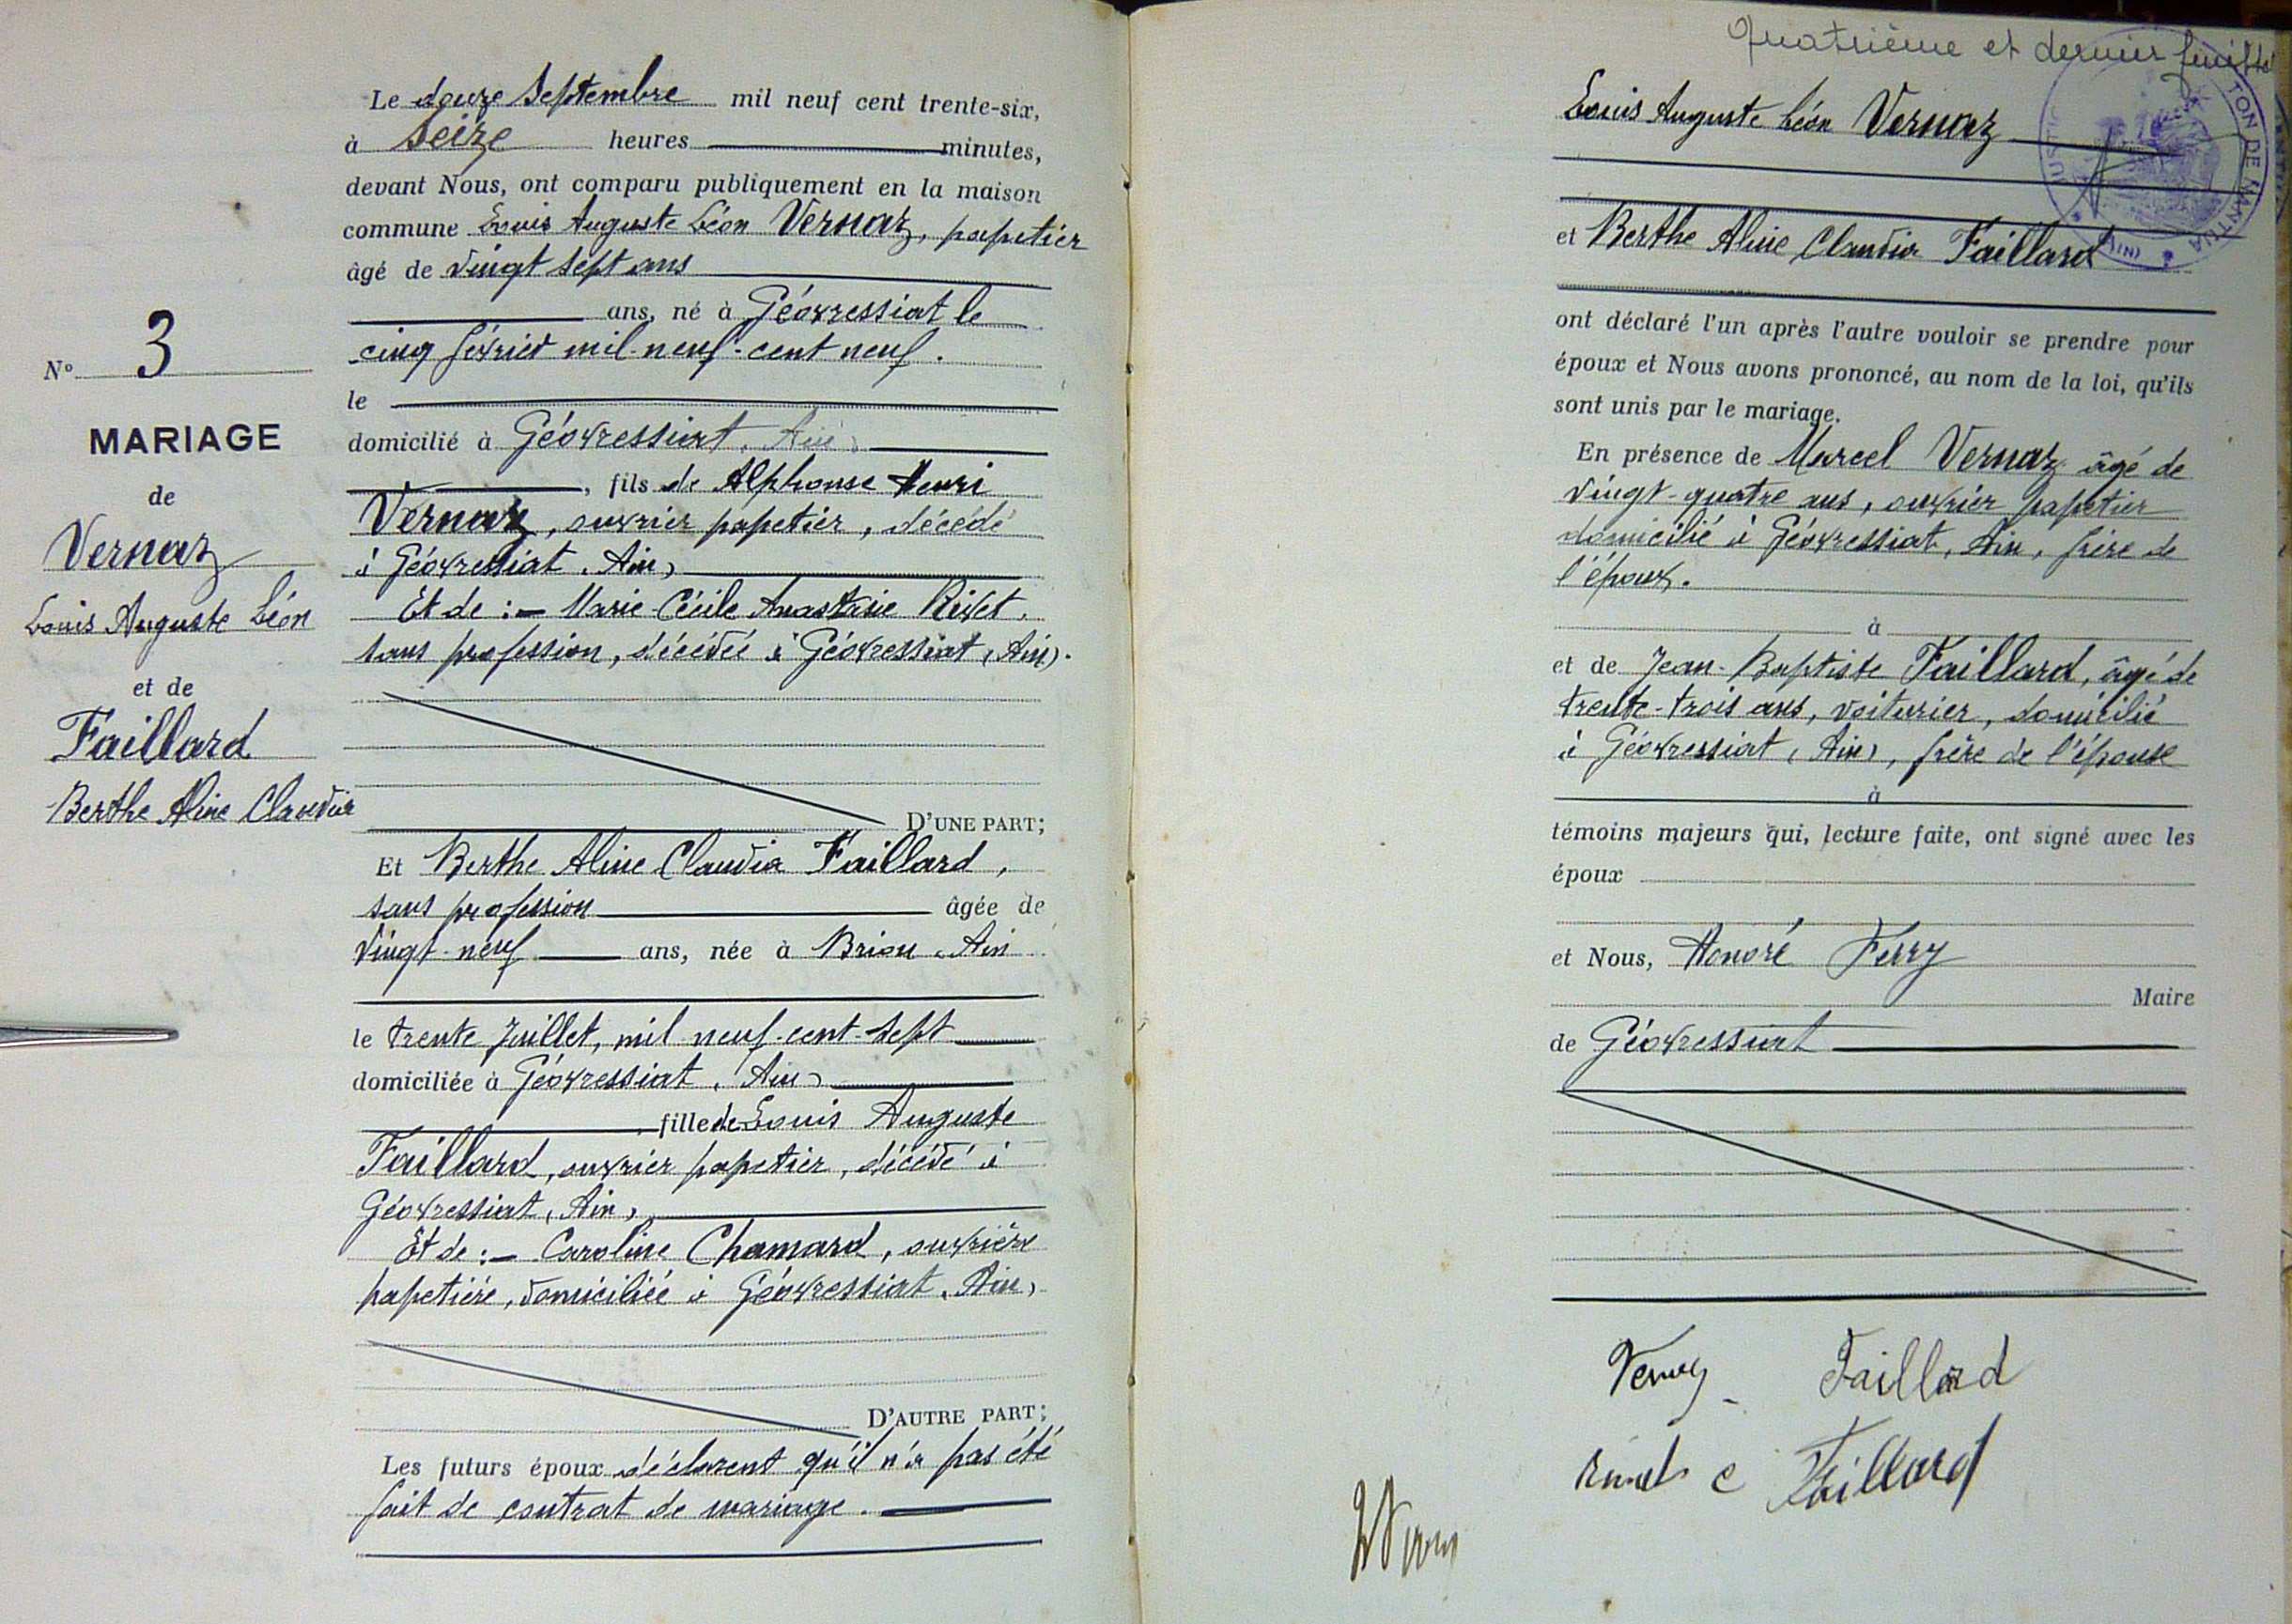 N° 3
MARIAGE
de
Vernaz
Louis Auguste Léon
et de
Faillard
Berthe Aline Claudia
Le douze Septembre mil neuf cent trente-six,
à Seize heures minutes,
devant Nous, ont comparu publiquement en la maison
commune Louis Auguste Léon Vernaz, papetier
âgé de vingt sept ans
ans, né à Géovressiat le
cinq février mil-neuf-cent neuf.
le
domicilié à Géovressiat, Ain,
, fils de Alphonse Henri
Vernaz, ouvrier papetier, décédé
à Géovressiat, Ain,
Et de :- Marie Cécile Anastasie Rivet,
sans profession, décédée à Géovressiat, (Ain).
D'UNE PART;
Et Berthe Aline Claudia Faillard,
sans profession âgée de
vingt-neuf ans, née à Brion, Ain
le trente Juillet, mil neuf-cent-sept
domiciliée à Géovressiat, Ain,
, fille de Louis Auguste
Faillard, ouvrier papetier, décédé à
Géovressiat, (Ain),
Et de :- Caroline Chamard, ouvrière
papetière, domiciliée à Géovressiat, Ain,
D'AUTRE PART;
Les futurs époux déclarent qu'il n'a pas été
fait de contrat de mariage.
Quatrième et dernier feuillet
TON DE MANTUA
(AIN)
Louis Auguste Léon Vernaz
et Berthe Aline Claudia Faillard
ont déclaré l'un après l'autre vouloir se prendre pour
époux et Nous avons prononcé, au nom de la loi, qu'ils
sont unis par le mariage.
En présence de Marcel Vernaz âgé de
vingt-quatre ans, ouvrier papetier
domicilié à Géovressiat, Ain, frère de
l'époux.
à
et de Jean-Baptiste Faillard, âgé de
trente-trois ans, voiturier, domicilié
à Géovressiat, (Ain), frère de l'épouse
à
témoins majeurs qui, lecture faite, ont signé avec les
époux
et Nous, Honoré Ferry
Maire
de Géovressiat
Faillard
Faillard